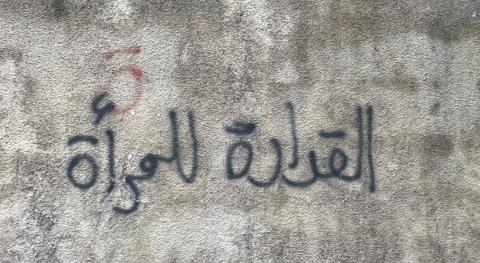 القدارة للمرأة